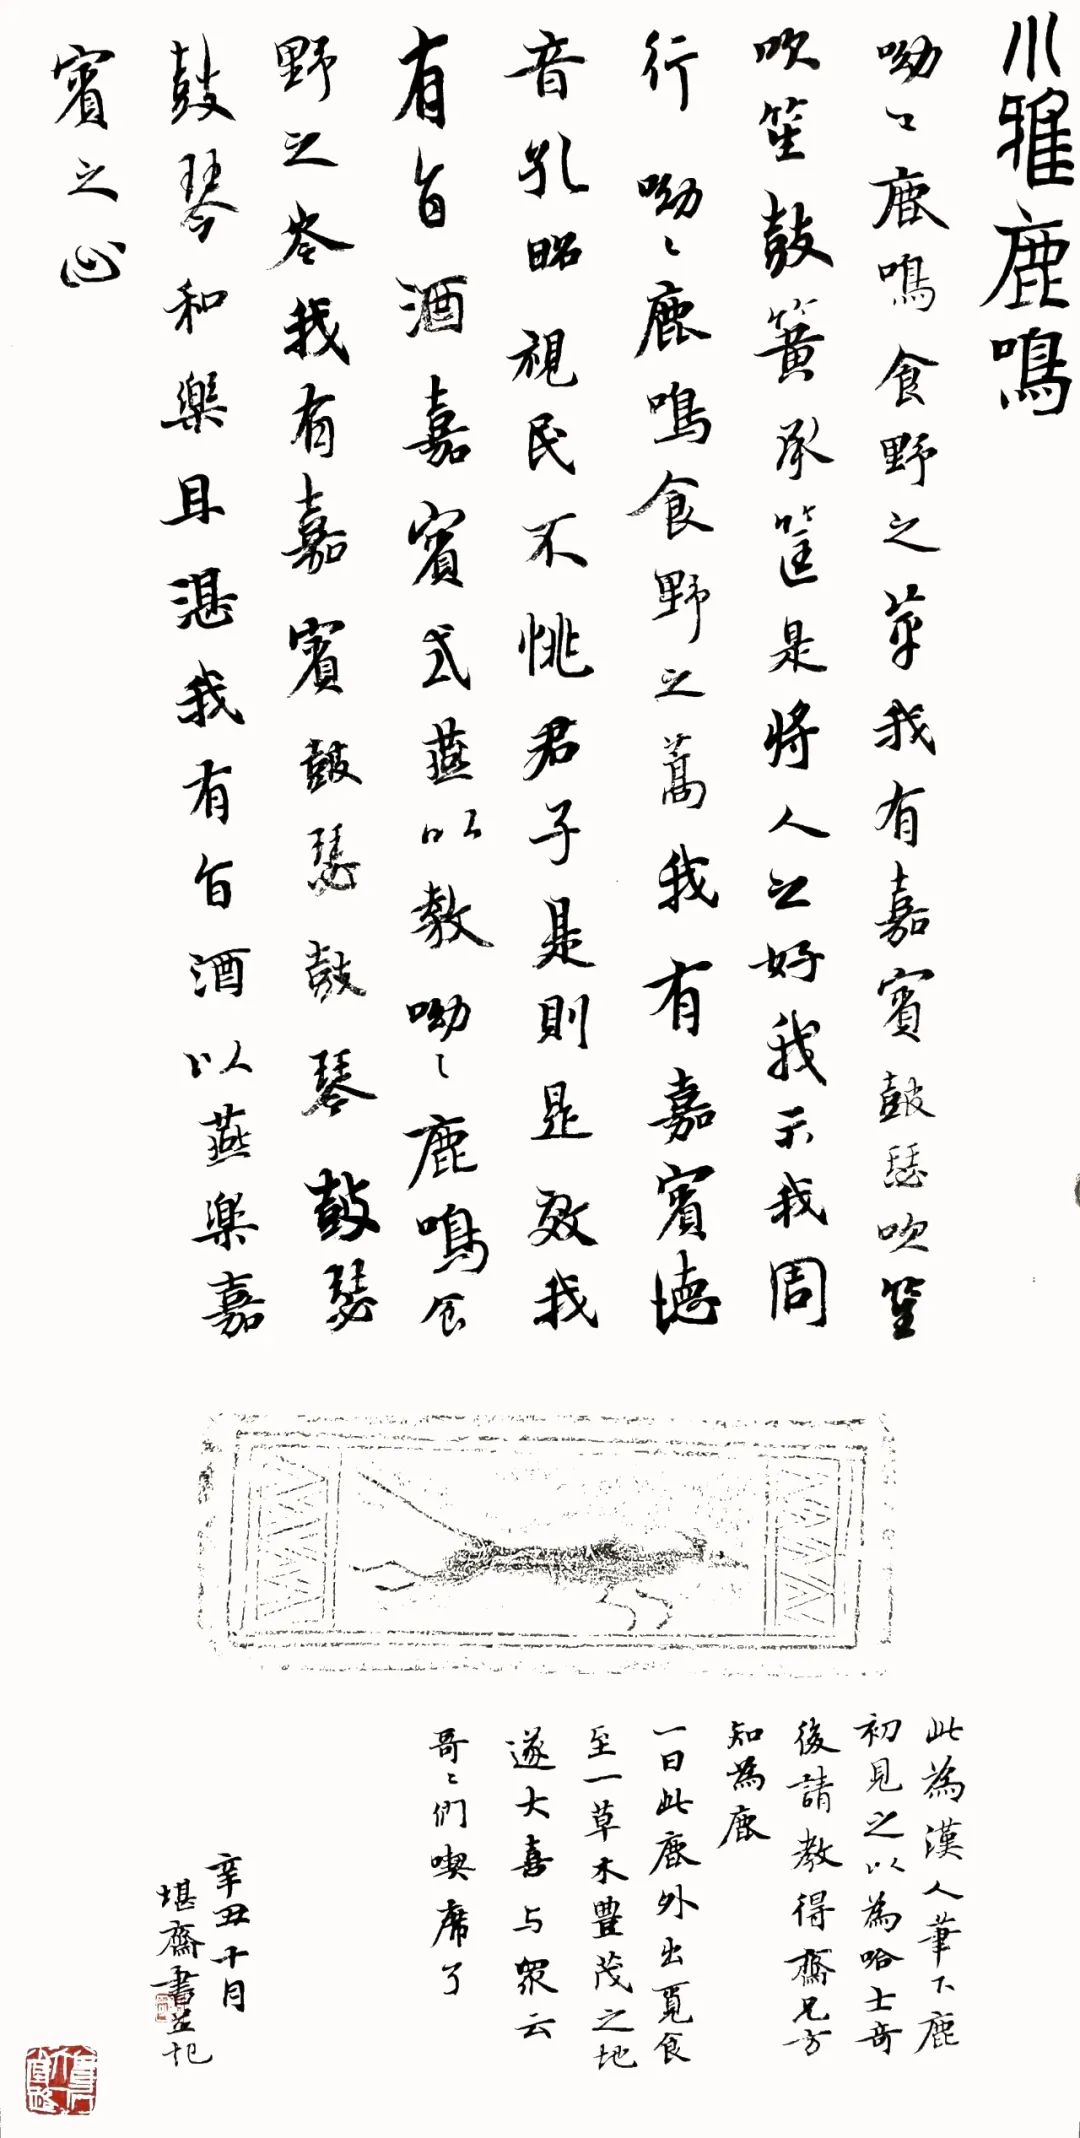 小雅鹿鳴
呦〻鹿鳴食野之苹我有嘉賓鼓瑟吹笙
吹笙鼓簧承筐是將人之好我示我周
行 呦〻鹿鳴食野之蒿我有嘉賓德
音孔昭視民不恌君子是則是效我
有旨酒嘉賓式燕以敖 呦〻鹿鳴食
野之芩我有嘉賓鼓瑟鼓琴鼓瑟
鼓琴和樂且湛我有旨酒以燕樂嘉
賓之心
此為漢人筆下鹿
初見之以為哈士奇
後請教得齋兄方
知為鹿
一日此鹿外出覓食
至一草木豊茂之地
遂大喜与眾云
哥〻們喫席了
辛丑十月
堪齋書並記